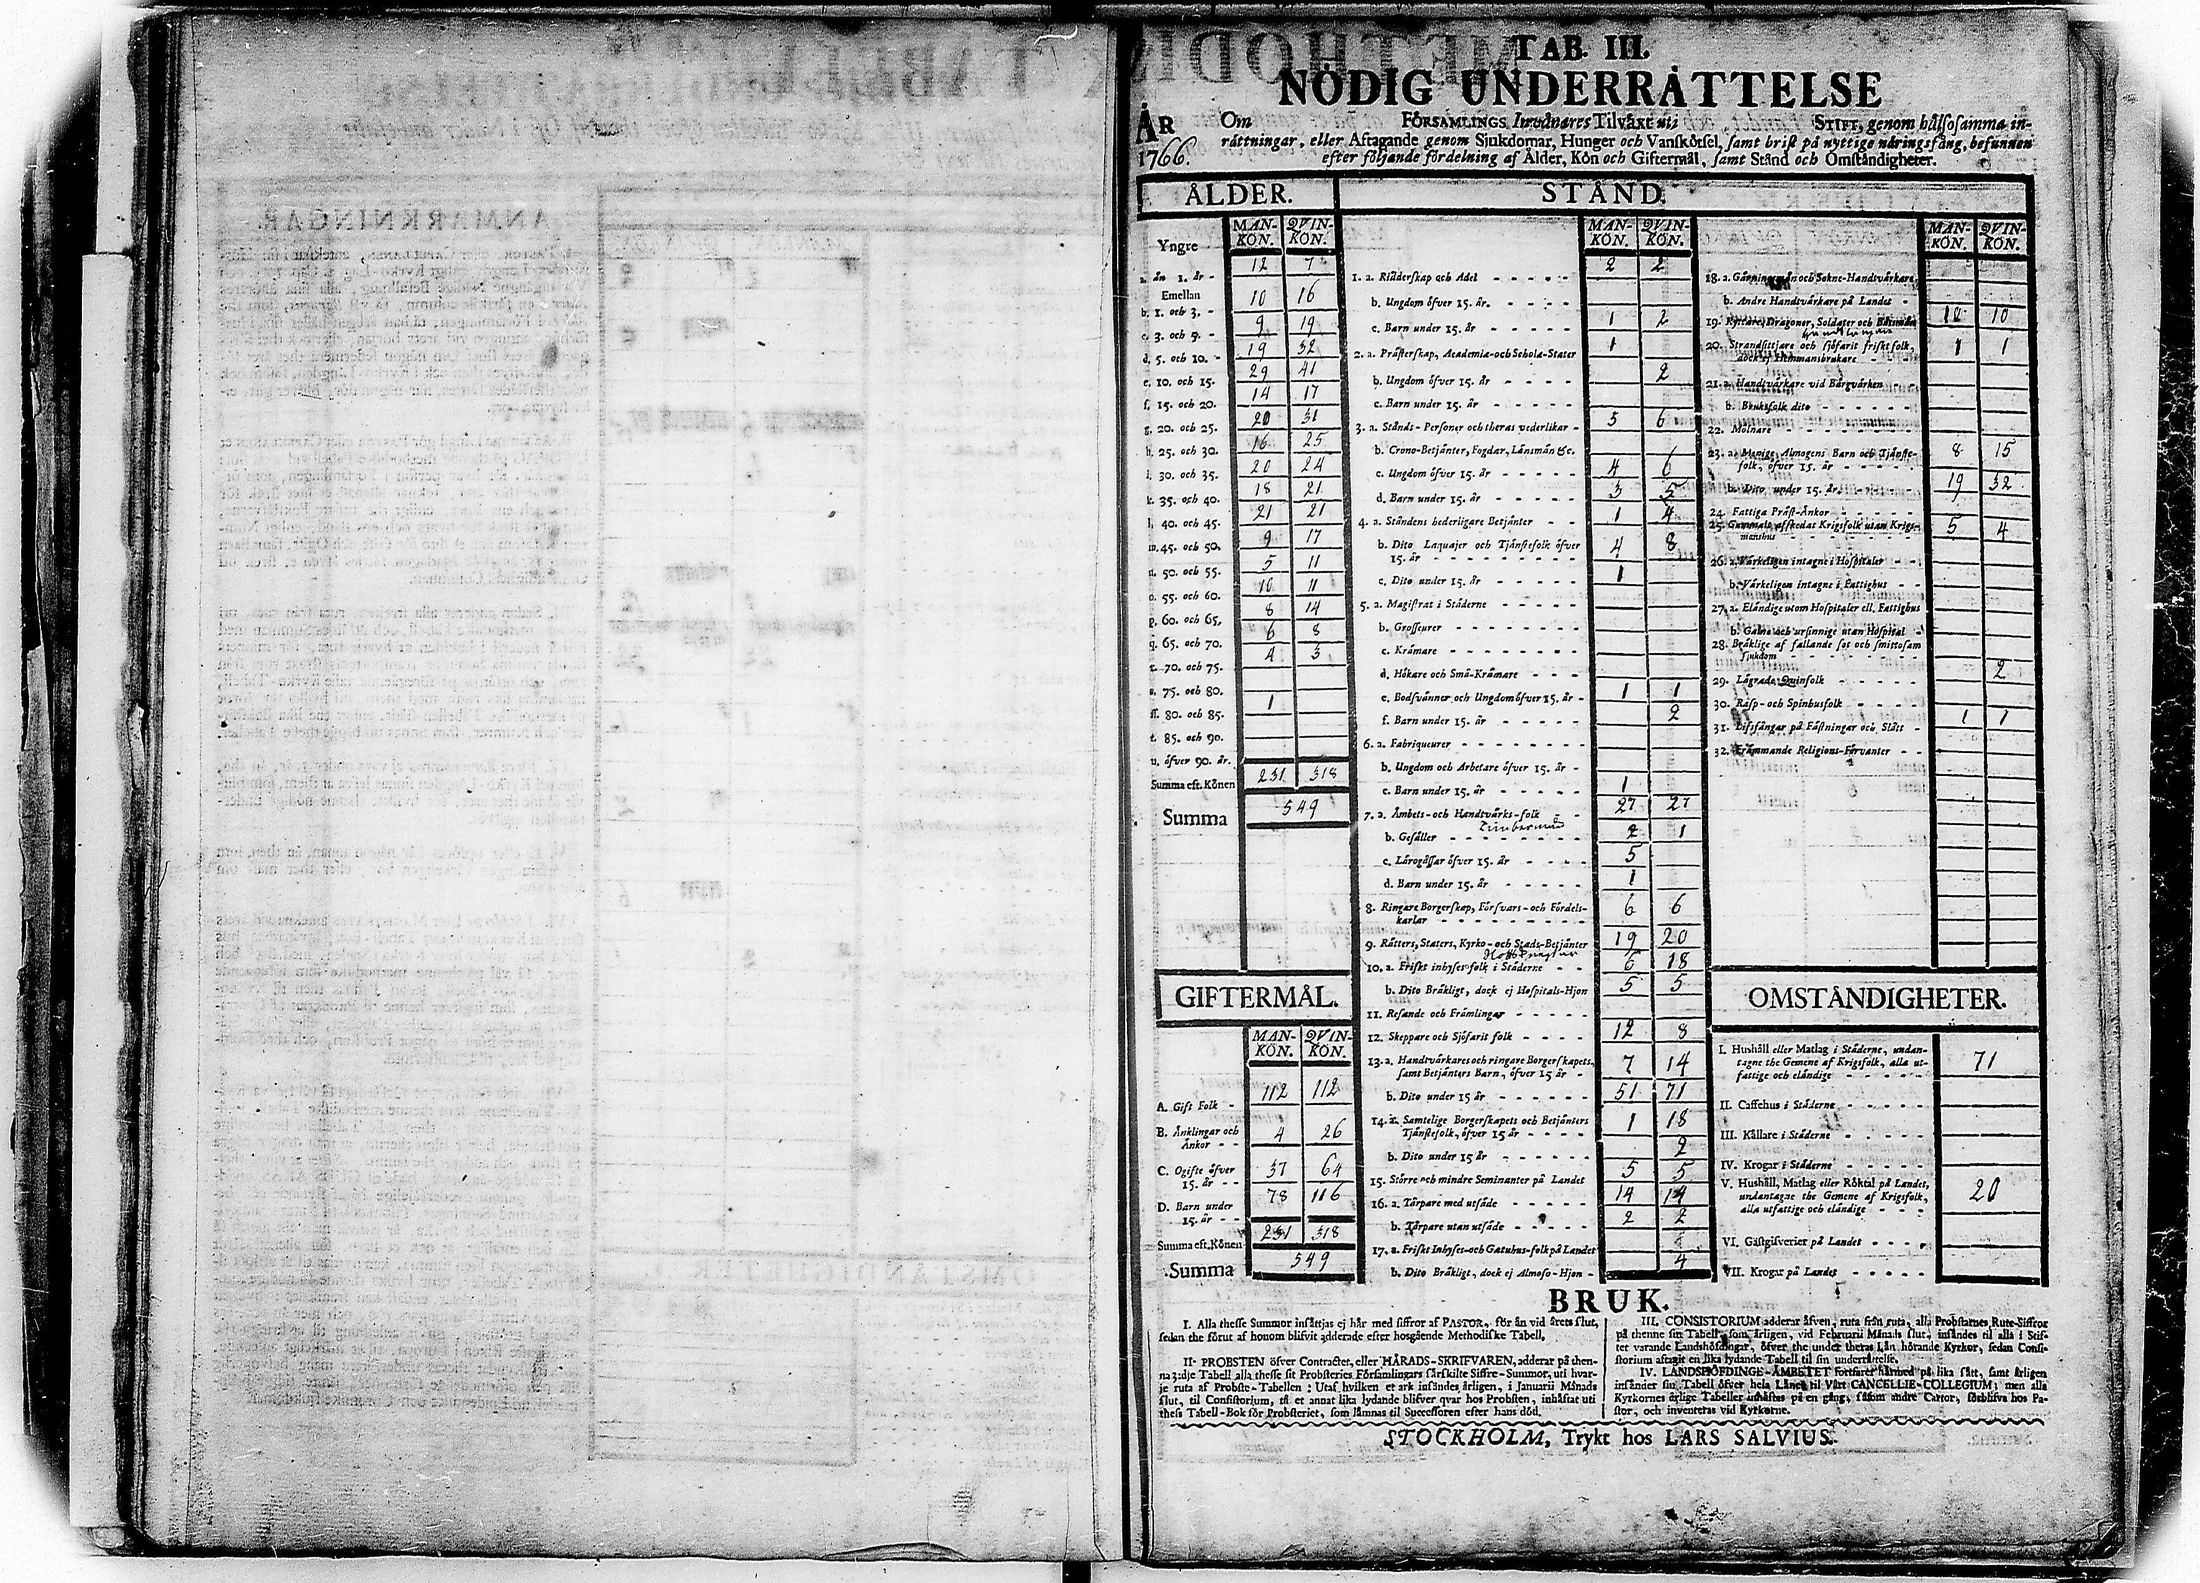 TAB. III.
NÖDIG UNDERRÄTTELSE
ÅR 1766.
Om FÖRSAMLINGS Inwånares Tilväxt uti STIFT, genom hälsosamma in-
rättningar, eller Aftagande genom Sjukdomar, Hunger och Vanskötsel, samt brist på nyttige näringsfång, befunnen
efter följande fördelning af Ålder, Kön och Giftermål, samt Stånd och Omständigheter.
ÅLDER.
MAN-KÖN. QVIN-KÖN.
Yngre
a. än 1. år - 12 7
Emellan
b. 1. och 3. - 10 16
c. 3. och 5. - 9 19
d. 5. och 10. - 19 32
e. 10. och 15. 29 41
f. 15. och 20. 14 17
g. 20. och 25. 20 31
h. 25. och 30. 16 25
i. 30. och 35. 20 24
k. 35. och 40. 18 21
l. 40. och 45. 21 21
m. 45. och 50. 9 17
n. 50. och 55. 5 11
o. 55. och 60. 10 11
p. 60. och 65. 8 14
q. 65. och 70. 6 8
r. 70. och 75. 4 3
s. 75. och 80.
ss. 80. och 85. 1
t. 85. och 90.
u. öfver 90. år.
Summa eft. Könen 231 318
Summa 549
GIFTERMÅL.
MAN-KÖN. QVIN-KÖN.
A. Gift Folk - 112 112
B. Änklingar och
Änkor - - 4 26
C. Ogifte öfver
15. år - - 37 64
D. Barn under
15. år - - 78 116
Summa eft. Könen 231 318
Summa 549
STÅND.
MAN-KÖN. QVIN-KÖN.
1. a. Ridderskap och Adel 2 2
b. Ungdom öfver 15. år.
c. Barn under 15. år 1 2
2. a. Prästerskap, Academiæ-och Scholæ-Stater 1
b. Ungdom öfver 15. år 2
c. Barn under 15. år
3. a. Stånds-Personer och theras vederlikar - 5 6
b. Crono-Betjänter, Fogdar, Länsmän &c.
c. Ungdom öfver 15. år 4 6
d. Barn under 15. år 3 5
4. a. Ståndens hederligare Betjänter 1 4
b. Dito Laquajer och Tjänstefolk öfver
15. år 4 8
c. Dito under 15. år 1
5. a. Magistrat i Städerne
b. Grosseurer
c. Krämare
d. Hökare och Små-Krämare
e. Bodsvänner och Ungdom öfver 15. år - 1 1
f. Barn under 15. år 2
6. a. Fabriqueurer
b. Ungdom och Arbetare öfver 15. år -
c. Barn under 15. år 1
7. a. Ämbets- och Handtvärks-folk 27 27
Timbermän
b. Gesäller 2 1
c. Lärogåssar öfver 15. år 5
d. Barn under 15. år 1
8. Ringare Borgerskap, Försvars- och Fördels-
karlar 6 6
9. Rätters, Staters, Kyrko- och Stads-Betjänter 19 20
10. a. Friskt inhyses folk i Städerne 6 18
b. Dito Bräkligt, dock ej Hospitals-Hjon 5 5
11. Resande och Främlingar
12. Skeppare och Sjöfarit folk 12 8
13. a. Handtvärkares och ringare Borgerskapets,
samt Betjänters Barn, öfver 15 år - 7 14
b. Dito under 15 år 51 71
14. a. Samtelige Borgerskapets och Betjänters
Tjänstefolk, öfver 15 år 1 18
b. Dito under 15 år 2
15. Större och mindre Seminanter på Landet 5 5
16. a. Tårpare med utsäde 14 14
b. Tårpare utan utsäde 2 2
17. a. Friskt Inhyses-och Gatuhus-folk på Landet
b. Dito Bräkligt, dock ej Almoso-Hjon - 4
MAN-KÖN. QVIN-KÖN.
18. a. Gärningsmän och Sokne-Handtvärkare
b. Andre Handtvärkare på Landet -
19. Ryttare, Dragoner, Soldater och Båtsmän 10 10
20. Strandsittjare och sjöfarit friskt folk,
dock ej Hemmansbrukare 1 1
21. a. Handtvärkare vid Bärgvärken
b. Bruksfolk dito
22. Mölnare
23. a. Menige Almogens Barn och Tjänste-
folk, öfver 15. år 8 15
b. Dito under 15. år. 19 32
24. Fattiga Präst-Änkor
25. Gammalt afskedat Krigsfolk utan Krigs-
manshus 5 4
26. a. Värkeligen intagne i Hospitaler
b. Värkeligen intagne i Fattighus
27. a. Eländige utom Hospitaler ell. Fattighus
b. Galne och ursinnige utan Hospital -
28. Bräklige af fallande sot och smittosam
sjukdom
29. Lägrade Qvinfolk 2
30. Rasp- och Spinhusfolk
31. Lifsfångar på Fästningar och Slått - 1 1
32. Främmande Religions-Förvanter
OMSTÄNDIGHETER.
I. Hushåll eller Matlag i Städerne, undan-
tagne the Gemene af Krigsfolk, alla ut-
fattige och eländige 71
II. Caffehus i Städerne
III. Källare i Städerne
IV. Krogar i Städerne
V. Hushåll, Matlag eller Röktal på Landet,
undantagne the Gemene af Krigsfolk,
alla utfattige och eländige 20
VI. Gästgifverier på Landet
VII. Krogar på Landet
BRUK.
I. Alla thesse Summor insättjas ej här med siffror af PASTOR, för än vid årets slut,
sedan the förut af honom blifvit adderade efter hosgående Methodiske Tabell.
II. PROBSTEN öfver Contractet, eller HÄRADS-SKRIFVAREN, adderar på then-
na 3:dje Tabell alla thesse sit Probsteries Församlingars särskilte Siffre-Summor, uti hvar-
je ruta af Probste-Tabellen: Utaf hvilken et ark insändes årligen, i Januarii Månads
slut, til Consistorium, til et annat lika lydande blifver qvar hos Probsten, inhäftat uti
thess Tabell-Bok för Probsteriet, som lämnas til Successoren efter hans död.
III. CONSISTORIUM adderar äfven, ruta från ruta, alla Probstarnes Rute-Siffror
på thenne sin Tabell, som årligen, vid Februarii Månads slut, insändes til alla i Stif-
tet varande Landshöfdingar, öfver the under theras Län hörande Kyrkor, sedan Consi-
storium aftagit en lika lydande Tabell til sin underrättelse.
IV. LANDSHÖFDINGE-ÄMBETET fortfarer härmed på lika sätt, samt årligen
insänder sin Tabell öfver hela Länet til Vårt CANCELLIE-COLLEGIUM; men alla
Kyrkornes årlige Tabeller inhäftas på en gång, såsom andre Cartor, förblifva hos Pa-
stor, och inventeras vid Kyrkorne.
STOCKHOLM, Trykt hos LARS SALVIUS.